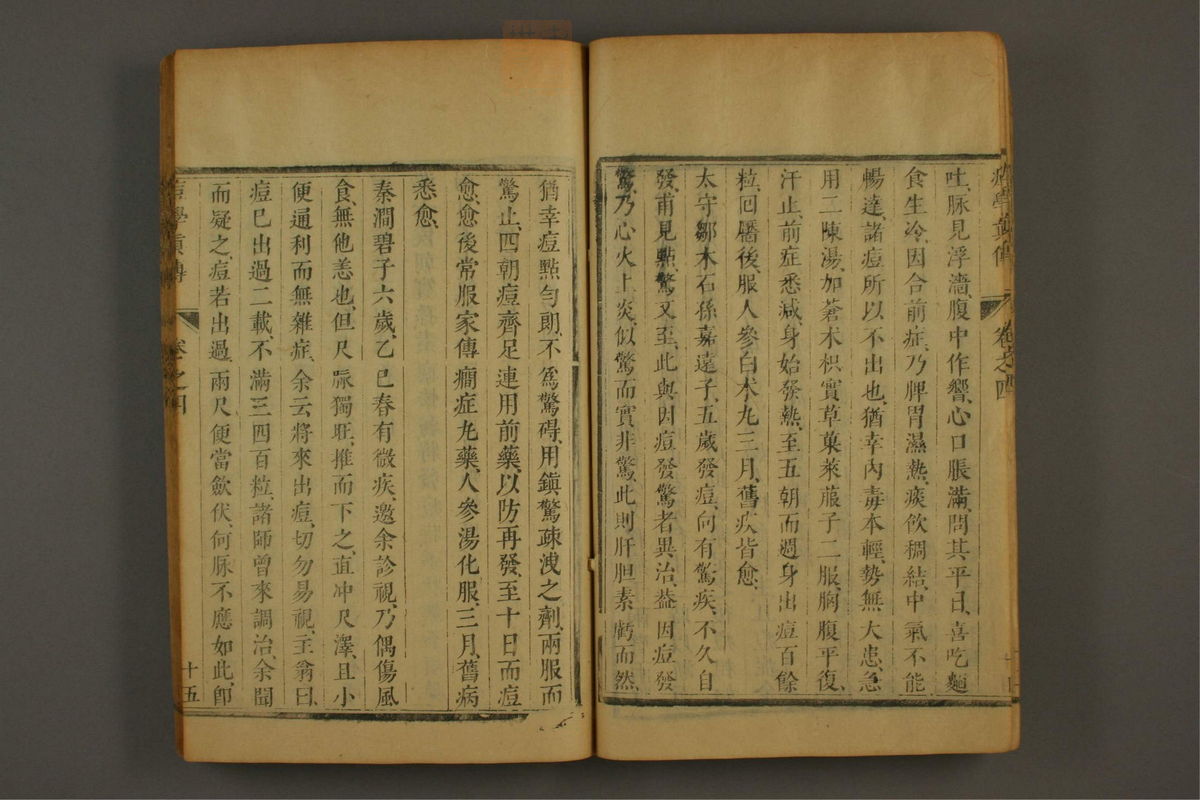 吐、脉見浮濇、腹中作響、心口脹滿、問其平日、喜吃麵
食生冷、因合前症、乃脾胃濕熱、痰飲稠結、中氣不能
暢達、諸痘所以不出也、猶幸內毒本輕、勢無大患、急
用二陳湯、加蒼木枳實草菓萊菔子二服、胸腹平復、
汗止、前症悉減、身始發熱、至五朝而週身出痘百餘
粒、回靨後、服人參白木丸三月、舊疾皆愈、
太守鄒木石孫嘉遠子、五歲發痘、向有驚疾、不久自
發、甫見點、驚又至、此與因痘發驚者異治、蓋因痘發
驚、乃心火上炎、似驚而實非驚、此則肝胆素虧而然、
卷之四
猶幸痘點匀朗、不為驚碍、用鎮驚疎洩之劑、兩服而
驚止、四朝痘齊足、連用前藥、以防再發、至十日而痘
愈、愈後常服家傳癎症丸藥、人參湯化服、三月、舊病
悉愈、
秦澗碧子六歲、乙巳春有微疾、邀余診視、乃偶傷風
食、無他恙也、但尺脈獨旺、推而下之、直冲尺澤、且小
便通利而無雜症、余云將來出痘、切勿易視、主翁曰、
痘已出過二載、不滿三四百粒、諸師曾來調治、余聞
而疑之、痘若出過、兩尺便當歛伏、何脉不應如此、卽
痘學真傳
卷之四
十五